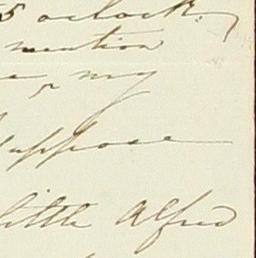 5 oclock.
mention
my
suppose
little Alfred